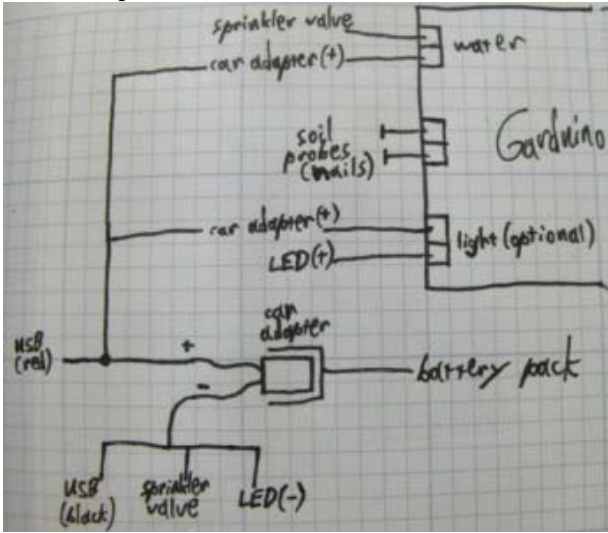 sprinkler valve
water
car adapter (+)
soil
probes
(nails)
Garduino
car adapter (+)
light (optional)
LED(+)
car
adapter
USB
(red)
+
battery pack
-
USB
(black)
sprinkler
valve
LED(-)